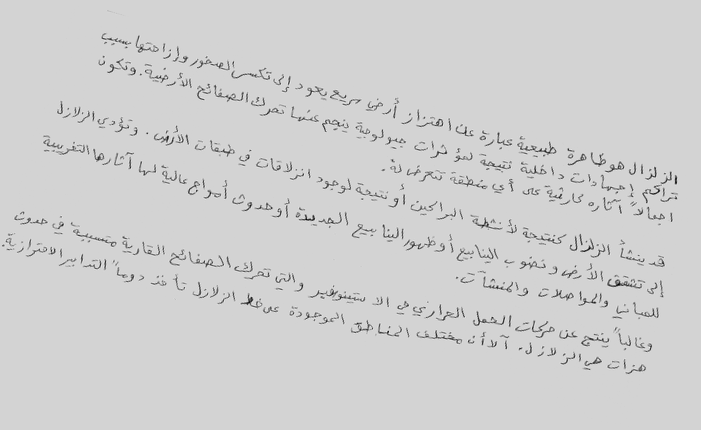 الزلزال هو ظاهرة طبيعية عبارة عن اهتزاز أرضي سريع يعود إلى تكسر الصخور وإزاحتها بسبب
تراكم إجهادات داخلية نتيجة لمؤثرات جيولوجية ينجم عنها تحرك الصفائح الأرضية. وتكون
اجمالاً آثاره كارثية على أي منطقة تتعرض له.
قد ينشأ الزلزال كنتيجة لأنشطة البراكين أو نتيجة لوجود انزلاقات في طبقات الأرض. وتؤدي الزلازل
إلى تشقق الأرض و نضوب الينابيع أو ظهور الينابيع الجديدة أو حدوث أمواج عالية لها آثارها التخريبية
للمباني والمواصلات والمنشآت.
وغالباً ينتج عن حركات الحمل الحراري في الاستينوسفير والتي تحرك الصفائح القارية متسببة في حدوث
هزات هي الزلازل. آلا أن مختلف المناطق الموجودة على خط الزلازل تأخذ دوماً التدابير الاحترازية.